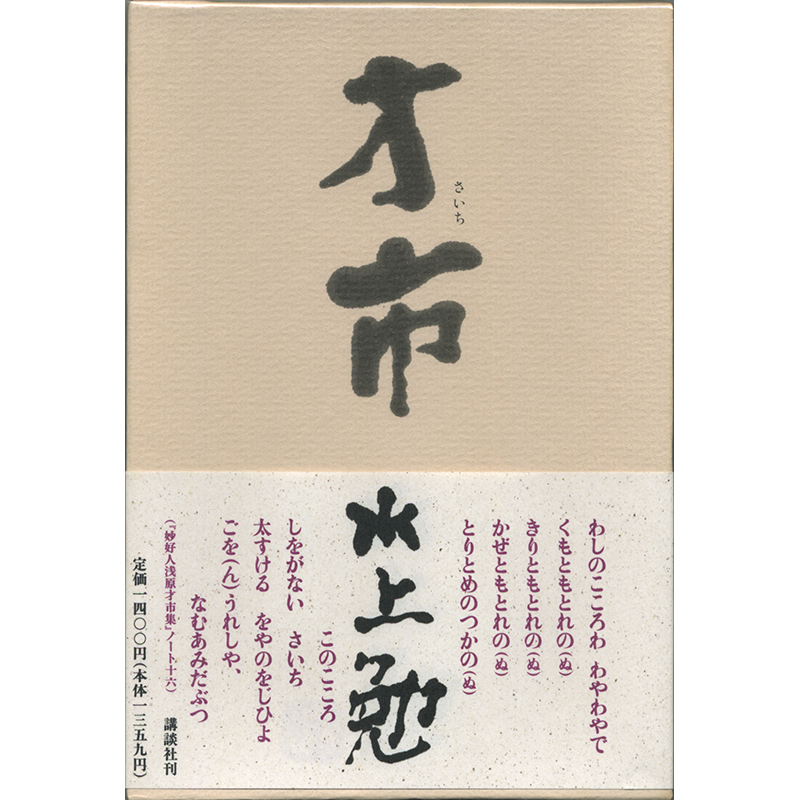 才市
さいち
水上勉
わしのこころわ わやわやで
くもともとれの(ぬ)
きりともとれの(ぬ)
かぜともとれの(ぬ)
とりとめのつかの(ぬ)
このこころ
しをがない さいち
太すける をやのをじひよ
ごを(ん)うれしや、
なむあみだぶつ
(『妙好人浅原才市集』ノート十六)
講談社刊
定価一四〇〇円(本体一三五九円)